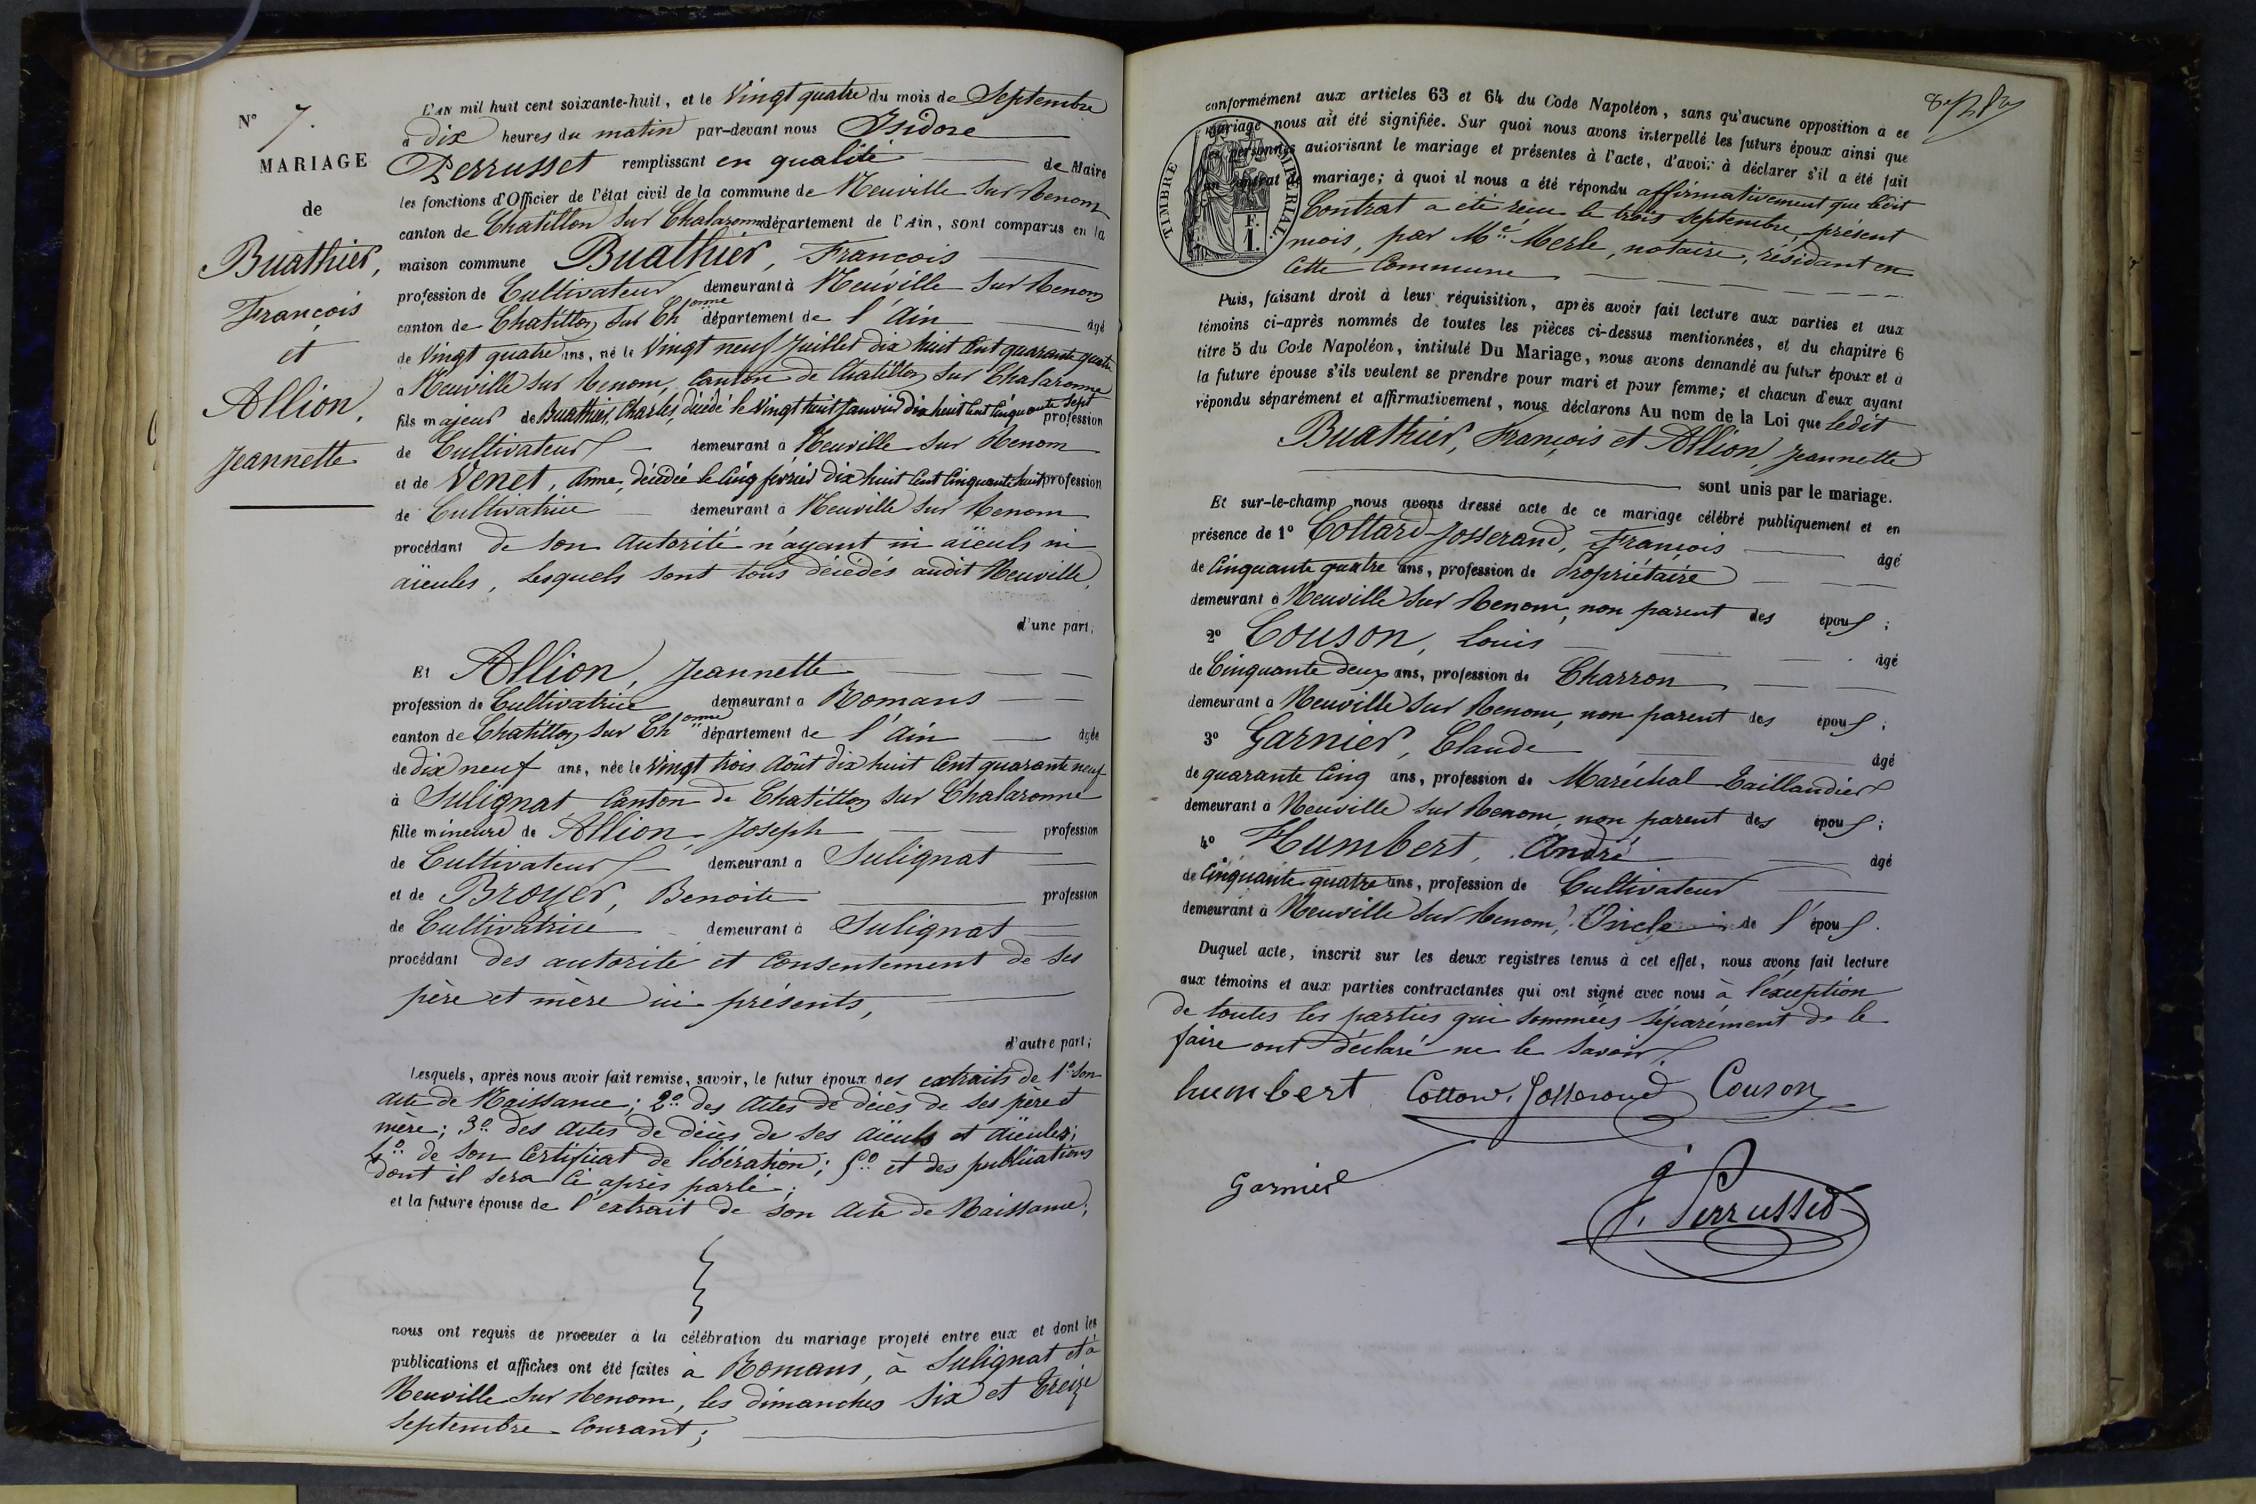 N° 7.
MARIAGE
de
Buathier,
François
et
Allion,
Jeannette
L'AN mil huit cent soixante-huit, et le Vingt quatre du mois de Septembre
à dix heures du matin par-devant nous Isidore
Perrusset remplissant en qualité de Maire
les fonctions d'Officier de l'état civil de la commune de Neuville sur Renom
canton de Chatillon sur Chalaronne département de l'Ain, sont comparus en la
maison commune Buathier, François
profession de Cultivateur demeurant à Neuville sur Renom
canton de Chatillon sur Chonne département de l'Ain âgé
de Vingt quatre ans, né le Vingt neuf Juillet dix huit Cent quarante quatre
à Neuville sur Renom, Canton de Chatillon sur Chalaronne
fils majeur de Buathier, Charles, décédé le Vingt huit Janvier dix huit Cent Cinquante sept profession
de Cultivateur demeurant à Neuville sur Renom
et de Venet, Anne, décédée le Cinq février dix huit Cent Cinquante huit profession
de Cultivatrice demeurant à Neuville sur Renom
procédant de son autorité n'ayant ni aïeuls ni
aïeules, lesquels sont tous décédés audit Neuville,
d'une part;
Et Allion, Jeannette
profession de Cultivatrice demeurant à Romans
canton de Chatillon sur Chonne département de l'Ain âgée
de dix neuf ans, née le Vingt trois Août dix huit Cent quarante neuf
à Sulignat Canton de Chatillon sur Chalaronne
fille mineure de Allion, Joseph profession
de Cultivateur demeurant à Sulignat
et de Broyer, Benoite profession
de Cultivatrice demeurant à Sulignat
procédant des autorité et Consentement de ses
père et mère ici présents,
d'autre part;
Lesquels, après nous avoir fait remise, savoir, le futur époux des extraits de 1° son
acte de Naissance; 2° des actes de décès de ses père et
mère; 3° des actes de décès de ses aïeuls et aïeules;
4° de son Certificat de libération; 5° et des publications
dont il sera Ci après parlé;
et la future épouse de l'extrait de son acte de Naissance;
nous ont requis de procéder à la célébration du mariage projeté entre eux et dont les
publications et affiches ont été faites à Romans, à Sulignat et à
Neuville sur Renom, les dimanches six et treize
septembre Courant;
conformément aux articles 63 et 64 du Code Napoléon, sans qu'aucune opposition à ce
mariage nous ait été signifiée. Sur quoi nous avons interpellé les futurs époux ainsi que
les personnes autorisant le mariage et présentes à l'acte, d'avoir à déclarer s'il a été fait
un contrat de mariage; à quoi il nous a été répondu affirmativement que ledit
Contrat a été reçu le trois septembre, présent
mois, par Me Merle, notaire, résidant en
Cette Commune
TIMBRE IMPÉRIAL
1 F.
Puis, faisant droit à leur réquisition, après avoir fait lecture aux parties et aux
témoins ci-après nommés de toutes les pièces ci-dessus mentionnées, et du chapitre 6
titre 5 du Code Napoléon, intitulé Du Mariage, nous avons demandé au futur époux et à
la future épouse s'ils veulent se prendre pour mari et pour femme; et chacun d'eux ayant
répondu séparément et affirmativement, nous déclarons Au nom de la Loi que ledit
Buathier, François et Allion, Jeannette
sont unis par le mariage.
Et sur-le-champ nous avons dressé acte de ce mariage célébré publiquement et en
présence de 1° Cottard-Josserand, François âgé
de Cinquante quatre ans, profession de Propriétaire
demeurant à Neuville sur Renom, non parent des époux;
2° Couson, Louis âgé
de Cinquante deux ans, profession de Charron
demeurant à Neuville sur Renom, non parent des époux;
3° Garnier, Claude âgé
de quarante Cinq ans, profession de Maréchal Taillandier
demeurant à Neuville sur Renom, non parent des époux;
4° Humbert, André âgé
de Cinquante quatre ans, profession de Cultivateur
demeurant à Neuville sur Renom, Oncle de l'époux.
Duquel acte, inscrit sur les deux registres tenus à cet effet, nous avons fait lecture
aux témoins et aux parties contractantes qui ont signé avec nous à l'exception
de toutes les parties qui sommées séparément de le
faire ont déclaré ne le savoir.
humbert Cottard. Josserand Couson
Garnier
I. Perrusset